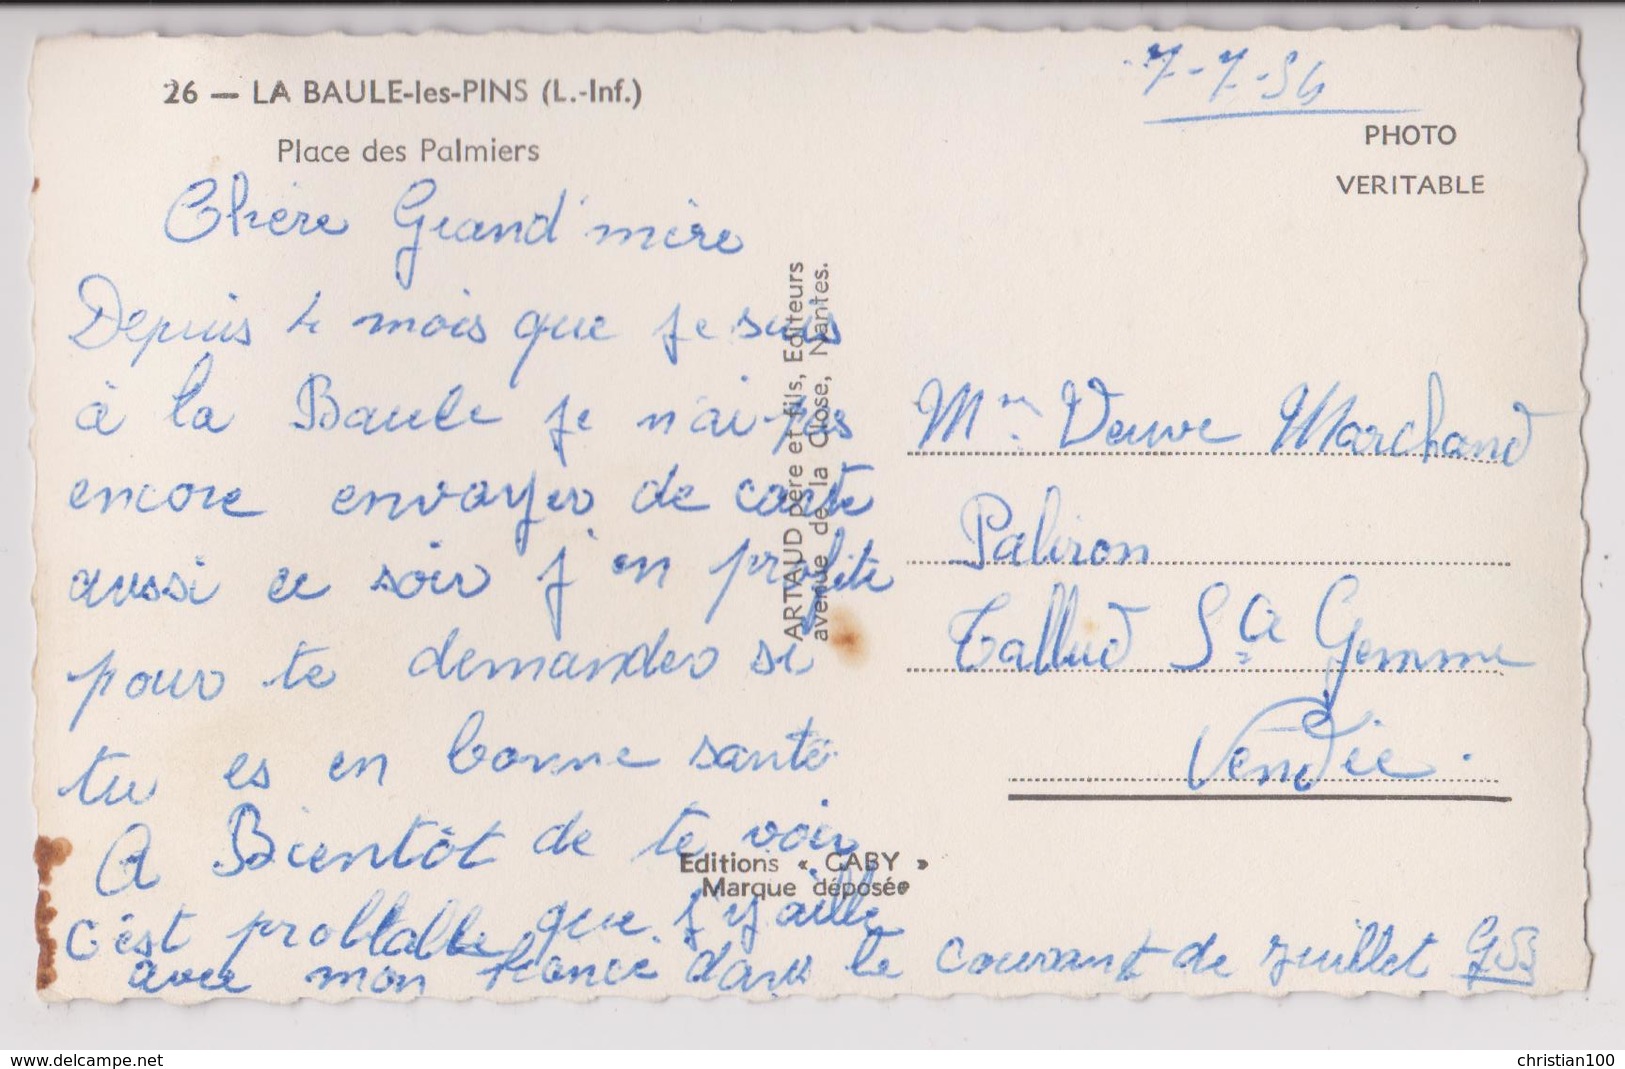 26 — LA BAULE-les-PINS (L.-Inf.)
Place des Palmiers
7-7-54
PHOTO
VERITABLE
Chère Grand'mère
Depuis 4 mois que je suis
à la Baule je n'ai pas
encore envoyer de carte
aussi ce soir j'en profite
pour te demander si
tu es en bonne santé.
A Bientôt de te voir
c'est probable que j'y aille
avec mon fiancé dans le courant de Juillet
ARTAUD père et fils, Editeurs
avenue de la Close, Nantes.
Editions « GABY »
Marque déposée
Mme Veuve Marchand
Paliron
Tallud Ste Gemme
Vendée.
www.delcampe.net
christian100